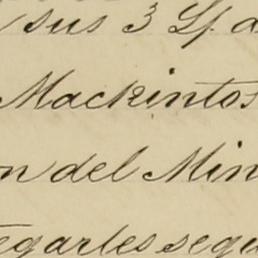 sus 3 Lp. d
Mackintos
n del Min
egarles segu